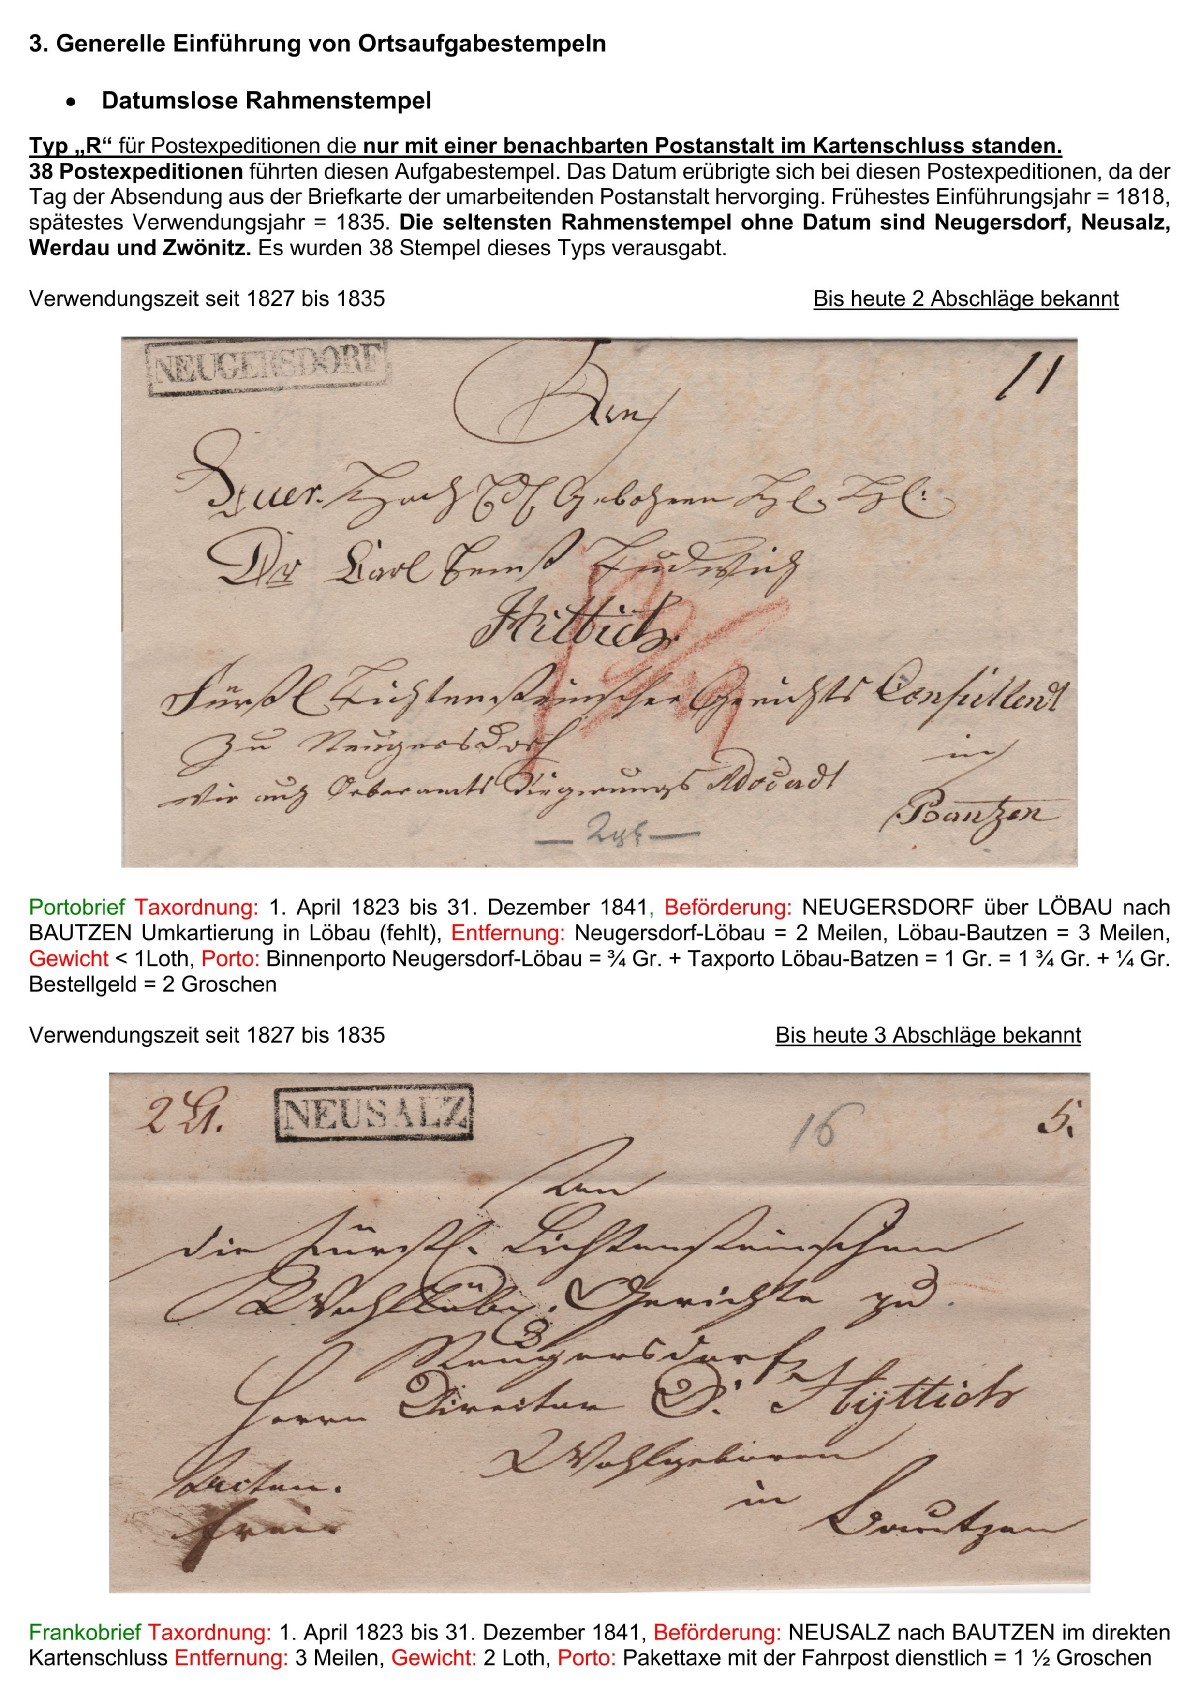 3. Generelle Einführung von Ortsaufgabestempeln
• Datumslose Rahmenstempel
Typ „R“ für Postexpeditionen die nur mit einer benachbarten Postanstalt im Kartenschluss standen.
38 Postexpeditionen führten diesen Aufgabestempel. Das Datum erübrigte sich bei diesen Postexpeditionen, da der
Tag der Absendung aus der Briefkarte der umarbeitenden Postanstalt hervorging. Frühestes Einführungsjahr = 1818,
spätestes Verwendungsjahr = 1835. Die seltensten Rahmenstempel ohne Datum sind Neugersdorf, Neusalz,
Werdau und Zwönitz. Es wurden 38 Stempel dieses Typs verausgabt.
Verwendungszeit seit 1827 bis 1835 Bis heute 2 Abschläge bekannt
NEUGERSDORF
11
Hoch Gebohren
Dr Carl Ernst Ludwich
Hittich
Fürstl Lichtensteinscher Gerichts Consullent
zu Neugersdorf in
wie auch Oberamts Regierungs Advocadt
Bautzen
Portobrief Taxordnung: 1. April 1823 bis 31. Dezember 1841, Beförderung: NEUGERSDORF über LÖBAU nach
BAUTZEN Umkartierung in Löbau (fehlt), Entfernung: Neugersdorf-Löbau = 2 Meilen, Löbau-Bautzen = 3 Meilen,
Gewicht < 1Loth, Porto: Binnenporto Neugersdorf-Löbau = ¾ Gr. + Taxporto Löbau-Batzen = 1 Gr. = 1 ¾ Gr. + ¼ Gr.
Bestellgeld = 2 Groschen
Verwendungszeit seit 1827 bis 1835 Bis heute 3 Abschläge bekannt
NEUSALZ
16
5.
An
die Fürstl. Lichtensteinschen
Wohllöbl. Gerichte zu
Neugersdorf
Herrn Director D. Hyttich
Wohlgeboren
Acten. in
frei. Bautzen
Frankobrief Taxordnung: 1. April 1823 bis 31. Dezember 1841, Beförderung: NEUSALZ nach BAUTZEN im direkten
Kartenschluss Entfernung: 3 Meilen, Gewicht: 2 Loth, Porto: Pakettaxe mit der Fahrpost dienstlich = 1 ½ Groschen